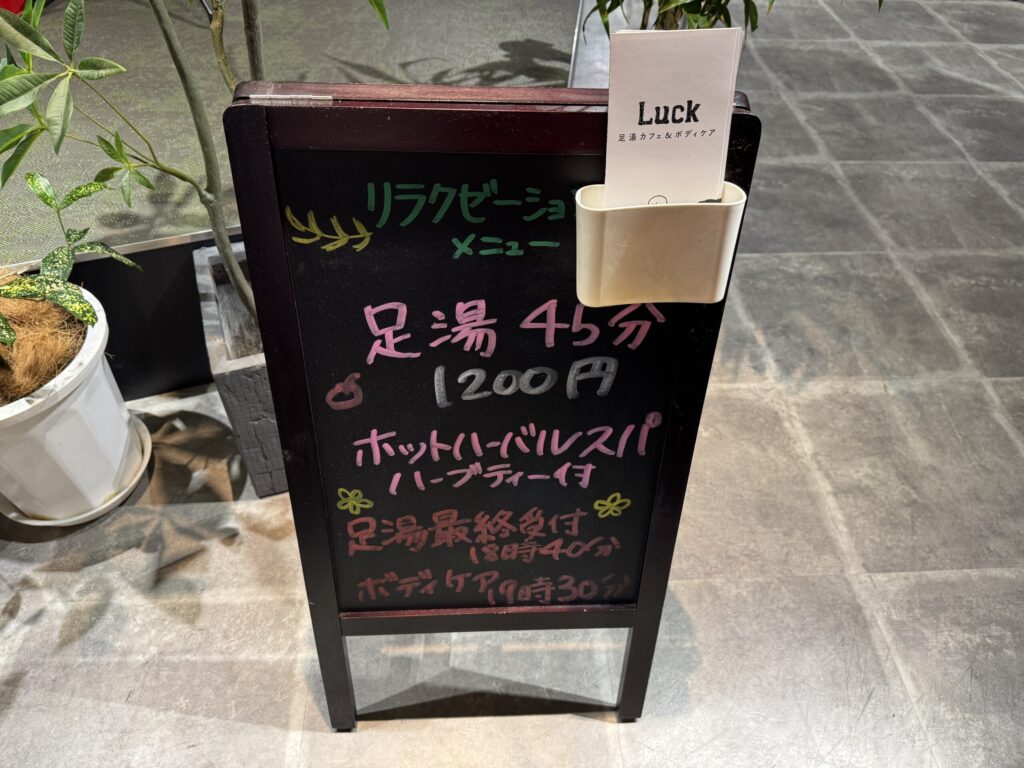 Luck
足湯カフェ&ボディケア
リラクゼーショ
メニュー
足湯 45分
1200円
ホットハーバルスパ
ハーブティー付
足湯最終受付
18時40分
ボディケア 19時30分